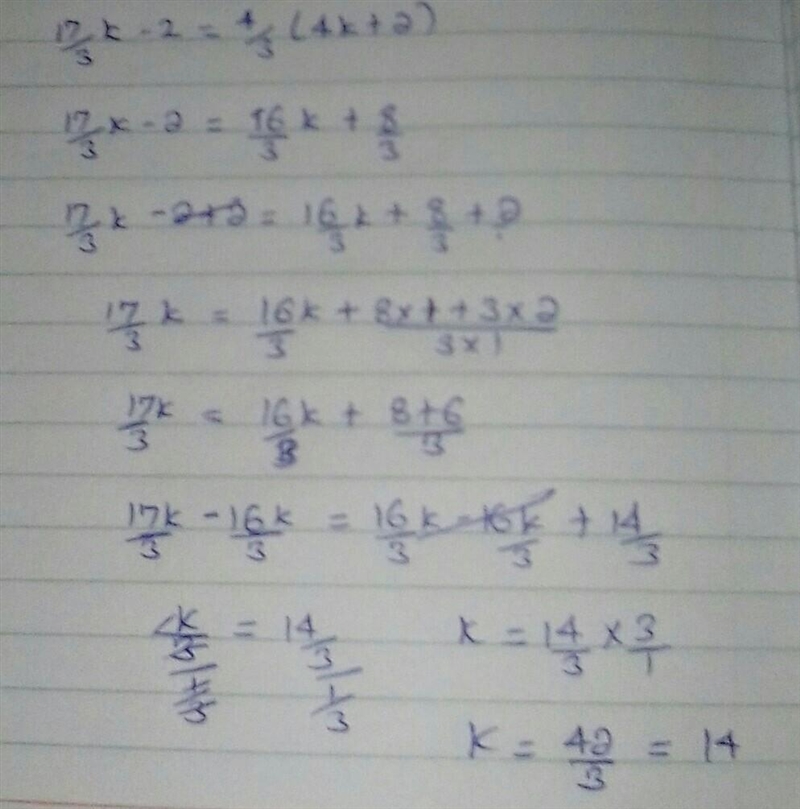 17/3 k - 2 = 4/3 (4k + 2)
17/3 k - 2 = 16/3 k + 8/3
17/3 k - 2 + 2 = 16/3 k + 8/3 + 2
17/3 k = 16/3 k + (8 × 1 + 3 × 2)/(3 × 1)
17k/3 = 16k/3 + (8 + 6)/3
17k/3 - 16k/3 = 16/3 k - 16k/3 + 14/3
(k/3)/(1/3) = (14/3)/(1/3)
K = 14/3 × 3/1
K = 42/3 = 14